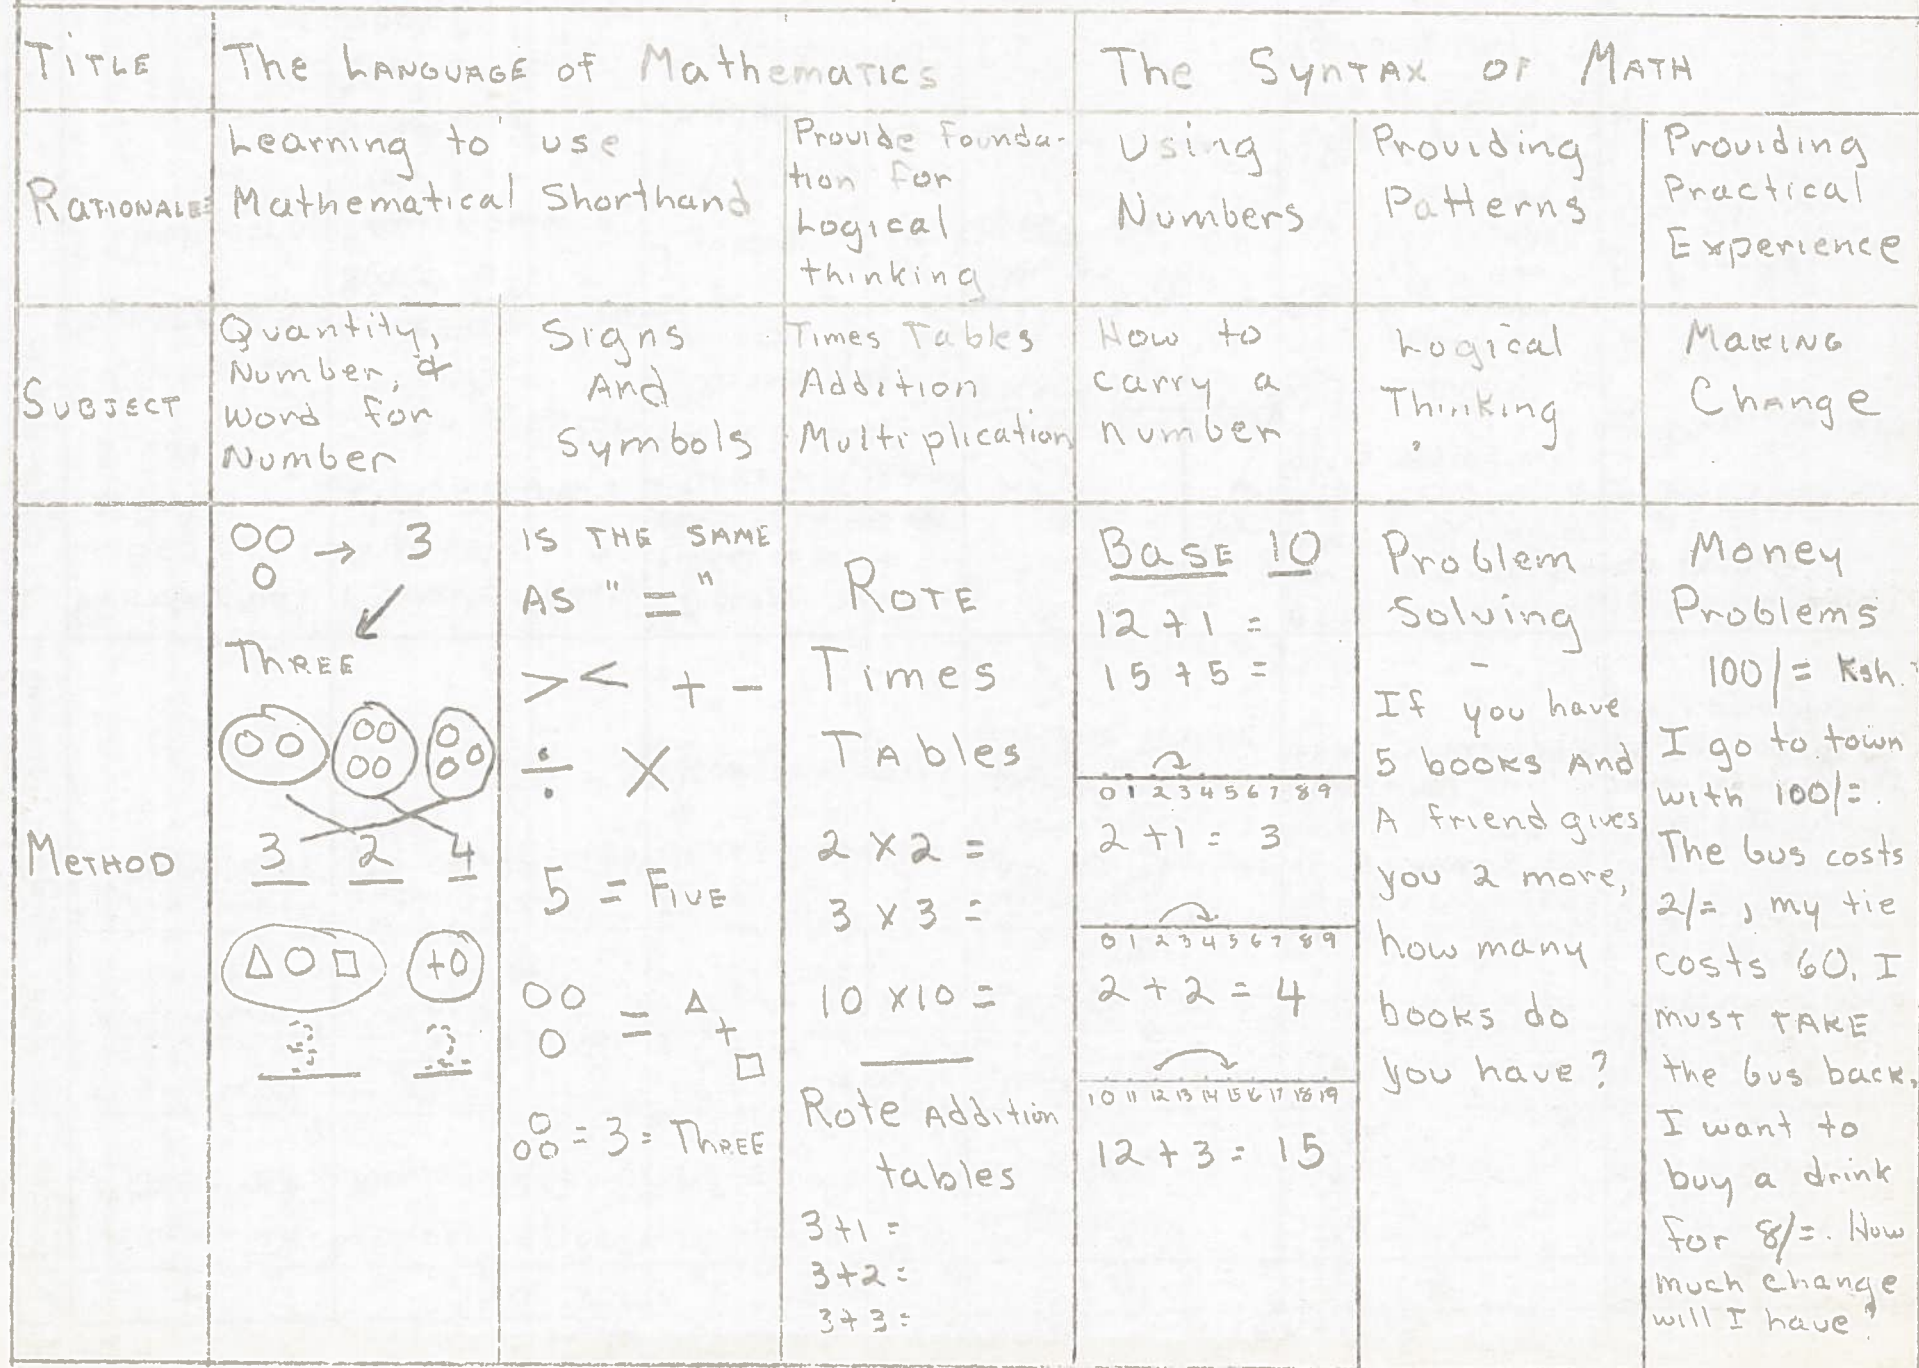 TITLE
The LANGUAGE of Mathematics
The Syntax of Math
RATIONALE
Learning to use
Mathematical Shorthand
Provide Founda-
tion for
Logical
thinking
Using
Numbers
Providing
Patterns
Providing
Practical
Experience
SUBJECT
Quantity,
Number, &
Word for
Number
Signs
And
Symbols
Times Tables
Addition
Multiplication
How to
carry a
number
Logical
Thinking
Making
Change
METHOD
OO → 3
O
THREE
3 2 4
+
3 2
IS THE SAME
AS "="
> < + -
÷ X
5 = FIVE
OO = Δ + □
O
O
OO = 3 = THREE
ROTE
Times
Tables
2 x 2 =
3 x 3 =
10 x 10 =
Rote Addition
tables
3+1 =
3+2 =
3+3 =
BASE 10
12 + 1 =
15 + 5 =
0 1 2 3 4 5 6 7 8 9
2 + 1 = 3
0 1 2 3 4 5 6 7 8 9
2 + 2 = 4
10 11 12 13 14 15 16 17 18 19
12 + 3 = 15
Problem
Solving
-
If you have
5 books And
A friend gives
you 2 more,
how many
books do
you have?
Money
Problems
100/= Ksh.
I go to town
with 100/=.
The bus costs
2/=, my tie
costs 60. I
must TAKE
the bus back,
I want to
buy a drink
for 8/=. How
much change
will I have?